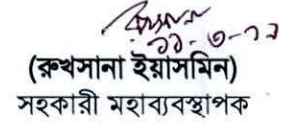 ১১-৩-১২
(রুখসানা ইয়াসমিন)
সহকারী মহাব্যবস্থাপক